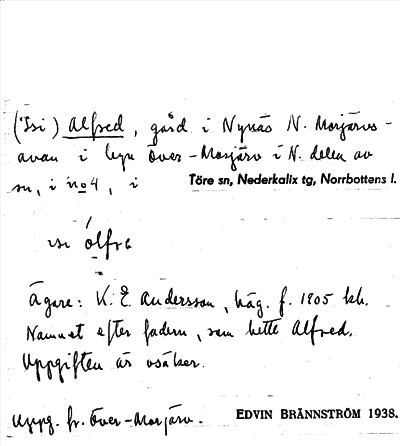 ('Isi) Alfred, gård i Nynäs N. Morjärvs-
avan i byn Över-Morjärv i N. delen av
sn, i no 4, i Töre sn, Nederkalix tg, Norrbottens l.
isi ólfre
Ägare: K. E. Andersson, häg. f. 1905 kh.
Namnet efter fadern, som hette Alfred.
Uppgiften är osäker.
Uppg. fr. Över-Morjärv. EDVIN BRÄNNSTRÖM 1938.